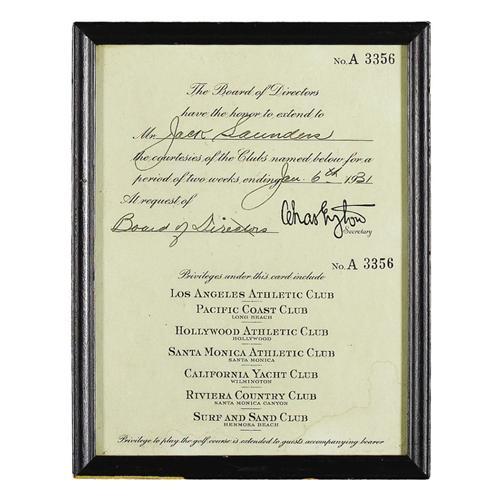 No. A 3356
The Board of Directors
have the honor to extend to
Mr. Jack Saunders
the courtesies of the Clubs named below for a
period of two weeks, ending Jan. 6th 1931
At request of
Board of Directors
Secretary
No. A 3356
Privileges under this card include
LOS ANGELES ATHLETIC CLUB
PACIFIC COAST CLUB
LONG BEACH
HOLLYWOOD ATHLETIC CLUB
HOLLYWOOD
SANTA MONICA ATHLETIC CLUB
SANTA MONICA
CALIFORNIA YACHT CLUB
WILMINGTON
RIVIERA COUNTRY CLUB
SANTA MONICA CANYON
SURF AND SAND CLUB
HERMOSA BEACH
Privilege to play the golf course is extended to guests accompanying bearer